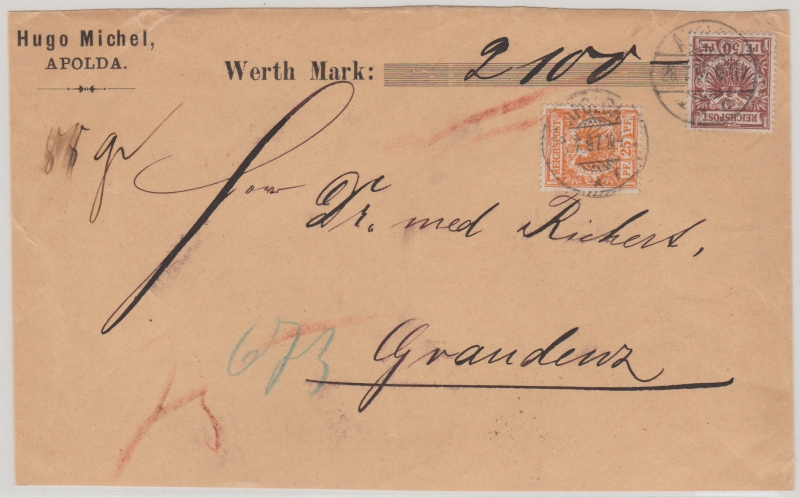 Hugo Michel,
APOLDA.
Werth Mark: 2100
REICHSPOST
50 PF
REICHSPOST
25 PF
APOLDA
88 gr
Herrn Dr. med Richert,
Graudenz
673